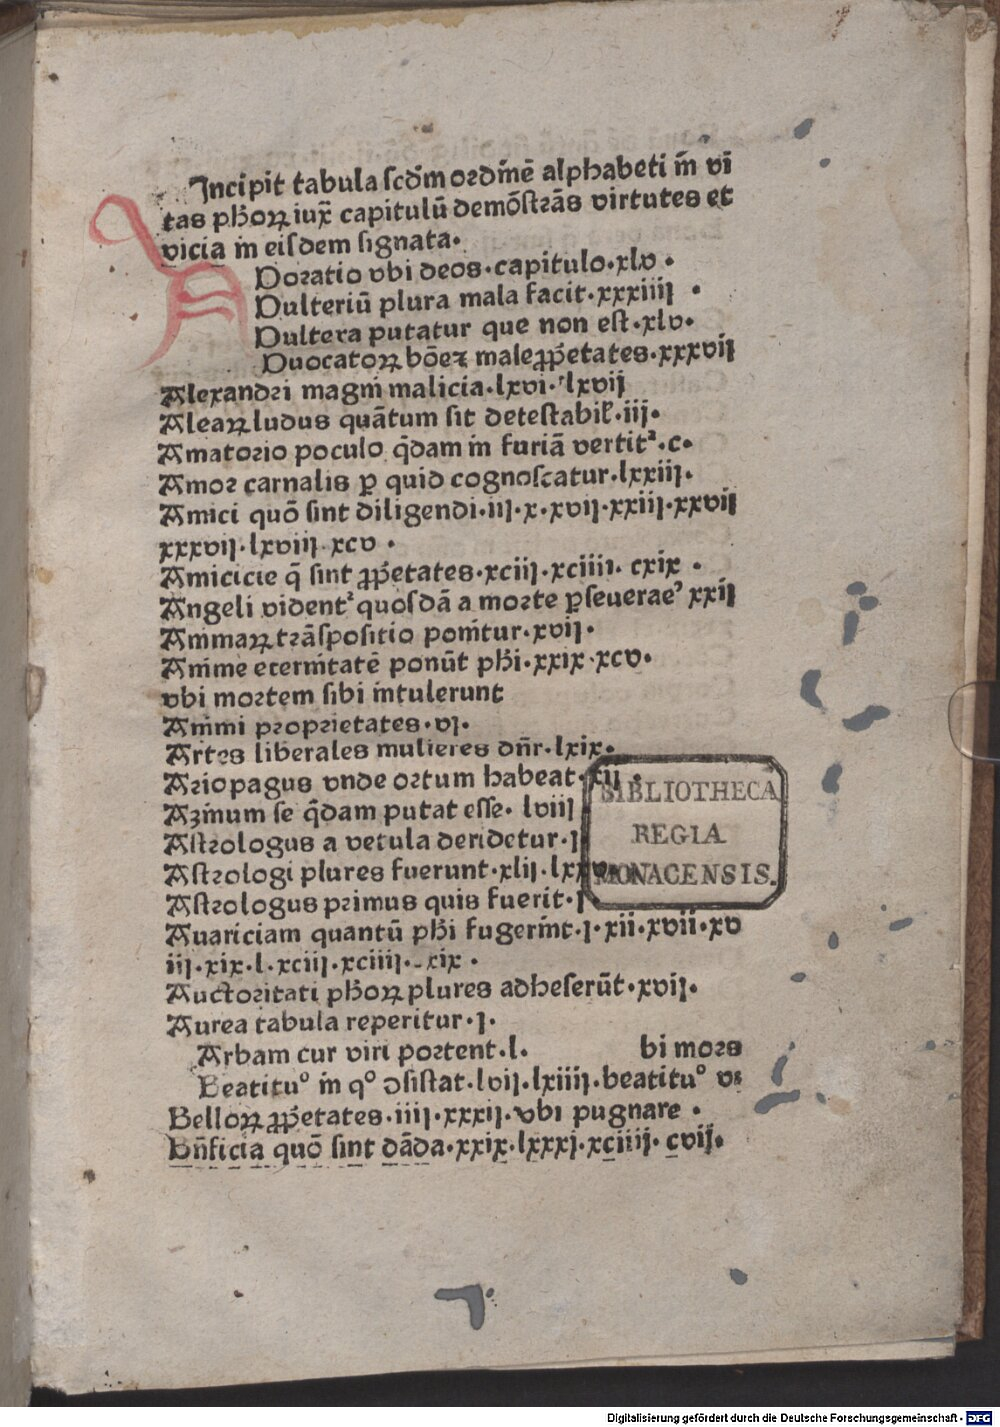 Incipit tabula scďm ordinē alphabeti in vi
tas phoꝝ iux̄ capitulū demōstrās virtutes et
vicia in eisdem signata.
Doratio vbi deos·capitulo·xlv·
Dulteriū plura mala facit·xxxiiij ·
Dultera putatur que non est·xlv·
Duocatoꝝ bōeꝛ male ꝓp̄etates·xxxvij
Alexandri magni malicia·lxvi·lxvij
Aleaꝝ ludus quātum sit detestabiľ·iij·
Amatorio poculo q̄dam in furiā vertitᷣ·c·
Amor carnalis ꝑ quid cognoscatur·lxxiij·
Amici quō sint diligendi·iij·x·xvij·xxiij·xxvij
xxxvij·lxviij·xcv·
Amicicie q̄ sint ꝓp̄etates·xciij·xciiij·cxix·
Angeli videntᷣ quosdā a morte ꝑseuerae᾽ xxij
Animaꝝ trāspositio ponitur·xvij·
Anime eternitatē ponūt phi·xxix·xcv·
vbi mortem sibi intulerunt
Animi proprietates·vj·
Artes liberales mulieres dn̄r·lxix·
Ariopagus vnde ortum habeat·xij·
Azinum se q̄dam putat esse·lviij
Astrologus a vetula deridetur·j
Astrologi plures fuerunt·xlij·
Astrologus primus quis fuerit·j
BIBLIOTHECA
REGIA
MONACENSIS.
Auariciam quantū phi fugerint·j·xii·xvii·xv
iij·xix·l·xciij·xciiij· xix·
Auctoritati phoꝝ plures adheserūt·xvij·
Aurea tabula reperitur·j·
Arbam cur viri portent·l· bi mors
Beatituᵒ in qᵒ ꝯsistat·lvij·lxiiij·beatituᵒ v
Belloꝝ ꝓp̄etates·iiij·xxxij·vbi pugnare·
Bn̄ficia quō sint dāda·xxix·lxxxj·xciiij·cvij·
Digitalisierung gefördert durch die Deutsche Forschungsgemeinschaft - DFG